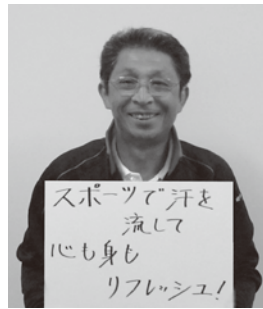 スポーツで汗を
流して
心も身も
リフレッシュ!